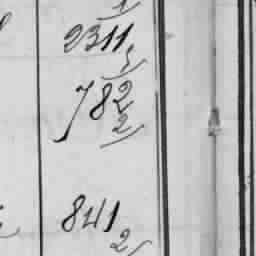 1
2311
5
782
2
841
2